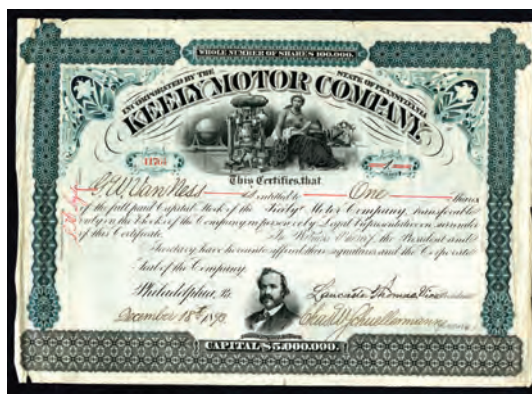 WHOLE NUMBER OF SHARES 100,000.
INCORPORATED BY THE STATE OF PENNSYLVANIA
KEELY MOTOR COMPANY.
This Certifies, that
G. W. Van Ness is entitled to One Shares
of the full paid Capital Stock of the Keely Motor Company, transferable
only on the Books of the Company in person or by Legal Representative on surrender
of this Certificate. In Witness Whereof, the President and
Secretary have hereunto affixed their signatures and the Corporate
Seal of the Company.
Philadelphia, Pa.
December 18th
CAPITAL $5,000,000.